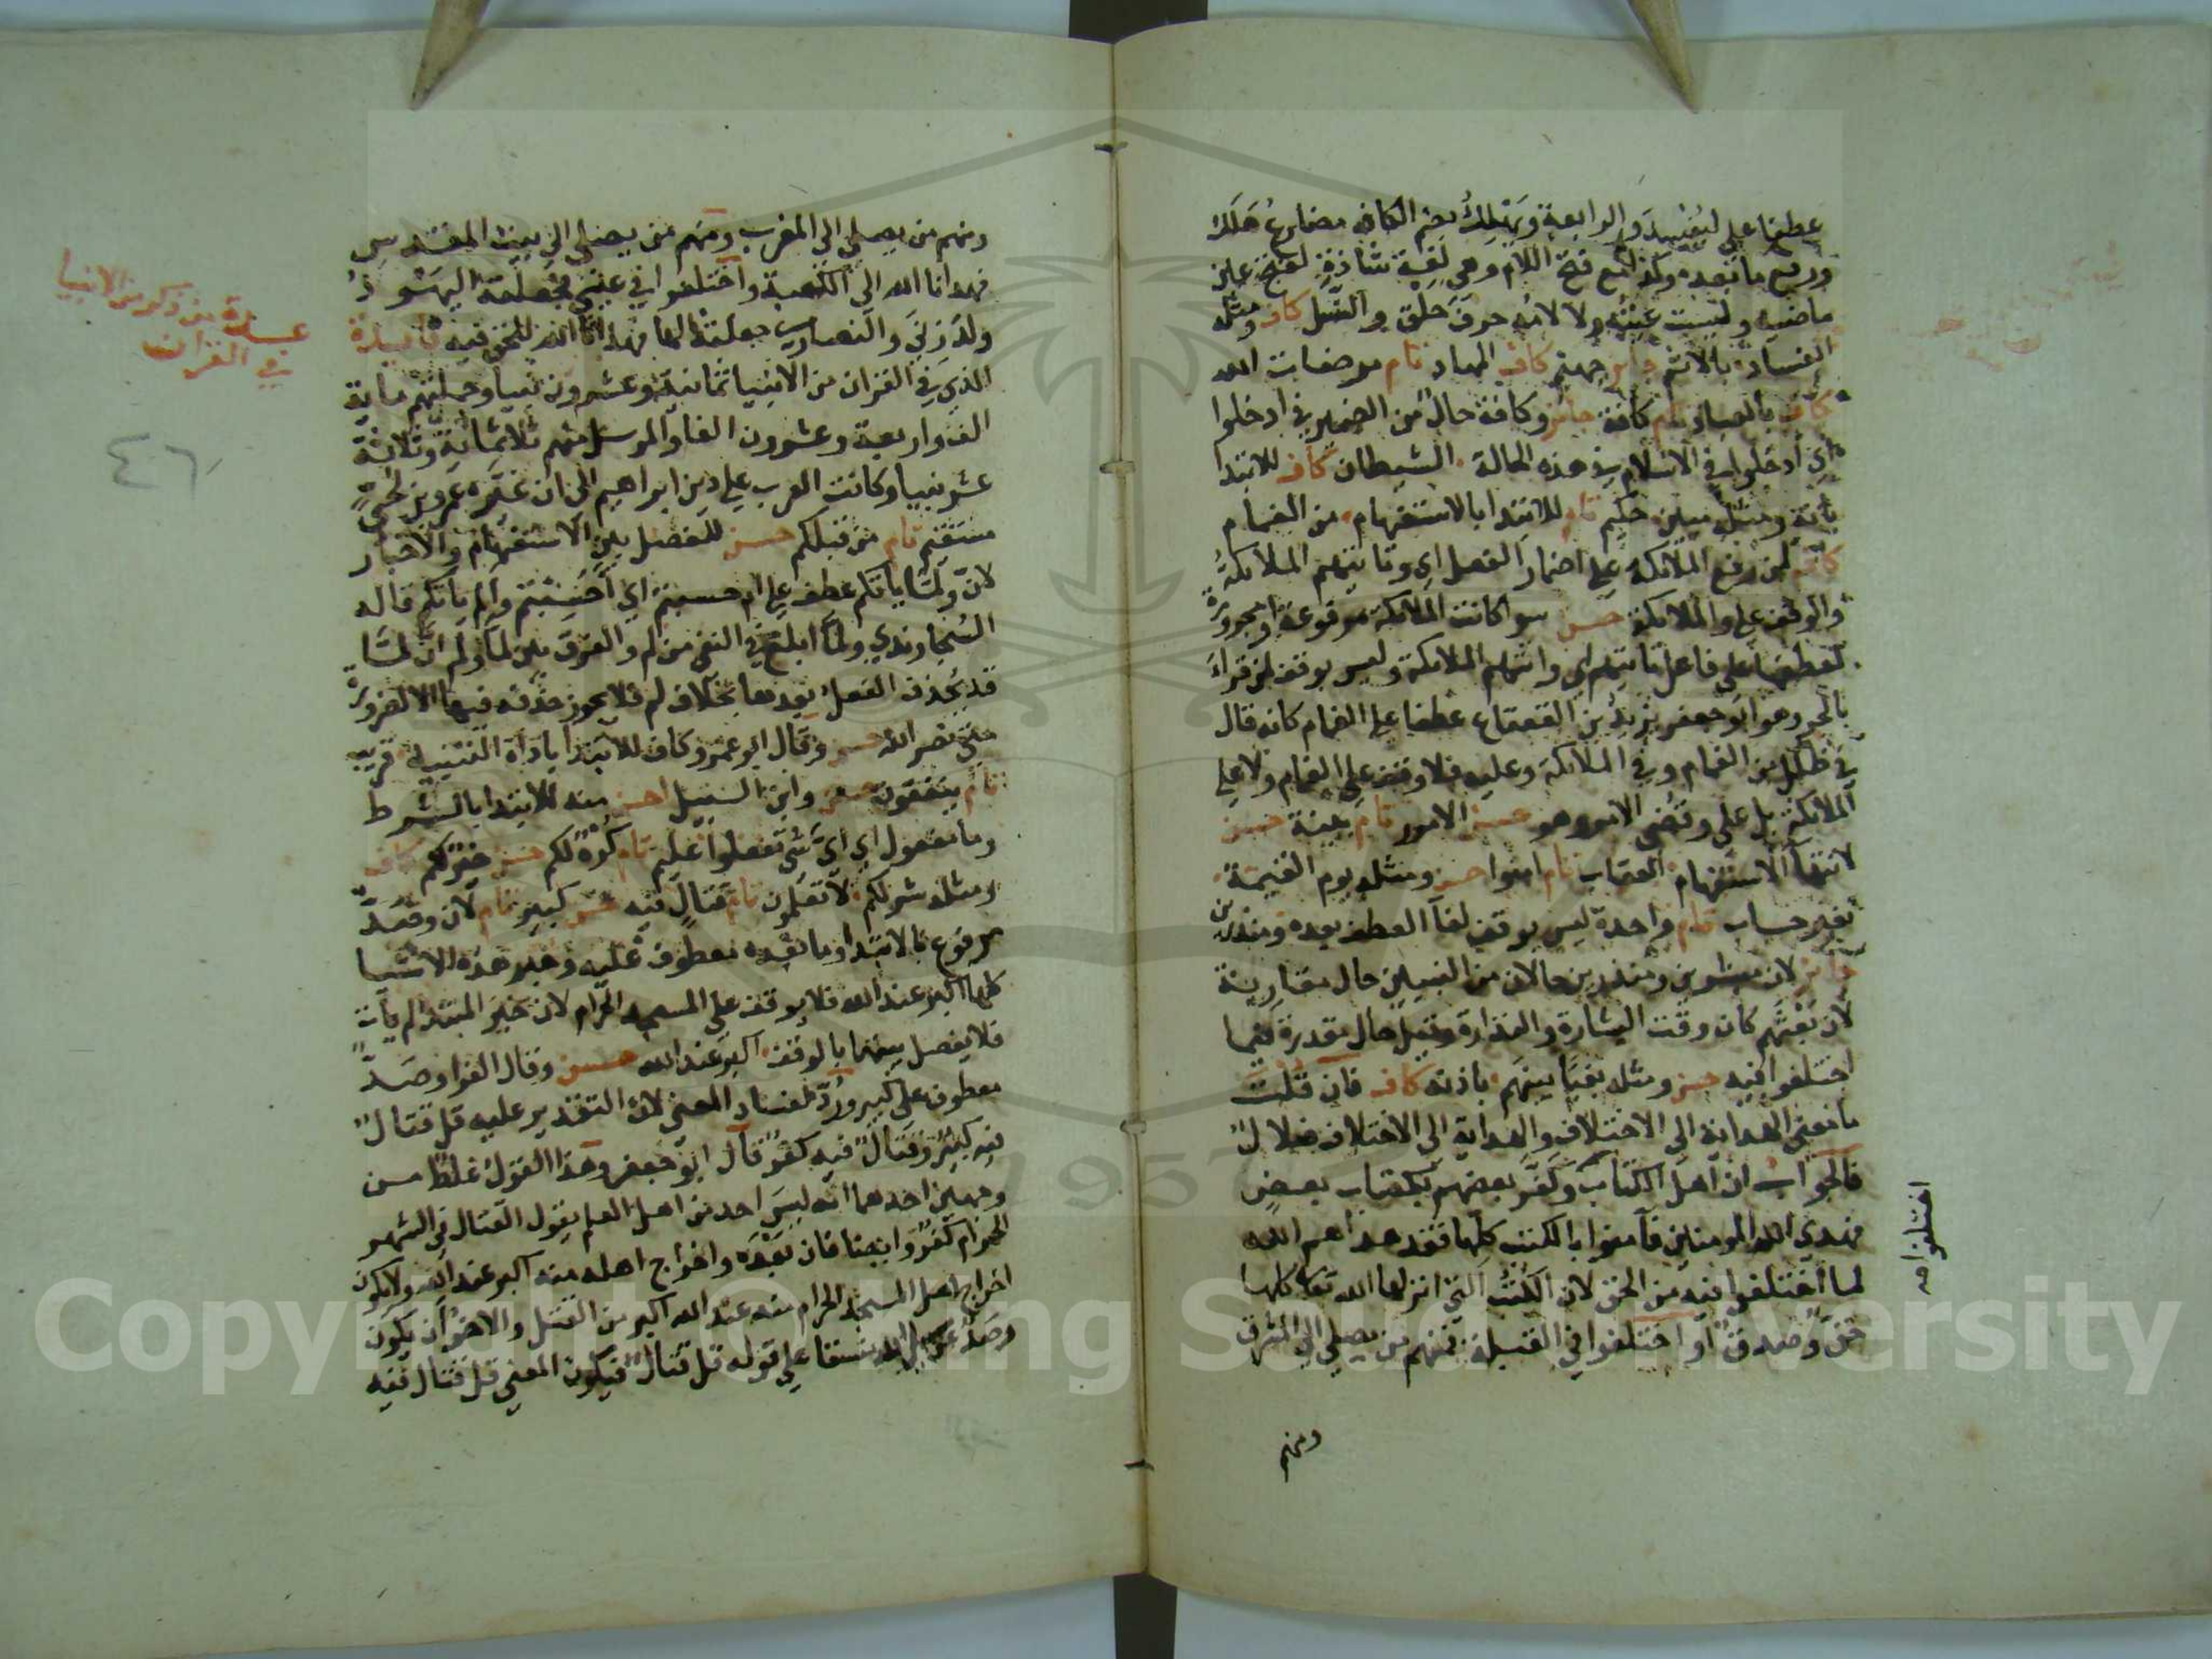 عطفا على ليفسد والرابعة ويهلك بضم الكاف مضارع هلك
ورفع ما بعده وكذا مع فتح اللام وهي لغة شاذة لفتح عين
ماضيه وليست عينه ولا لامه حرف حلق والنسل كاف ومثله
الفساد بالاثم جائز جهنم كاف المهاد تام مرضات الله
كاف بالعباد تام كافة جائز وكافة حال من الضمير في ادخلوا
اي ادخلوا في الاسلام في هذه الحالة الشيطان كاف للابتدا
بانه ومثله مبين حكيم تام للابتدا بالاستفهام من الغمام
كاف لمن رفع الملائكة على اضمار الفعل اي وتاتيهم الملائكة
والوقف على والملائكة حسن سوا كانت الملائكة مرفوعة او مجرورة
لعطفها على فاعل ياتيهم اي واتتهم الملائكة وليس بوقف لمن قراء
بالجر وهو ابو جعفر يزيد بن القعقاع عطفا على الغمام كانه قال
في ظلل من الغمام وفي الملائكة وعليه فلا وقف على الغمام ولا على
الملائكة بل على وقضي الامر وهو حسن الامور تام بينة حسن
لانتها الاستفهام العقاب تام امنوا حسن ومثله يوم القيمة
بغير حساب تام واحدة ليس بوقف لفآ العطف بعده ومنذرين
جائز لان مبشرين ومنذرين حالان من النبيين حال مقارنة
لان بعثهم كان وقت البشارة والنذارة وقيل حال مقدرة فيما
اختلفوا فيه حسن ومثله بغيا بينهم باذنه كاف فان قلت
ما معنى الهداية الى الاختلاف والهداية الى الاختلاف ضلال
فالجواب ان اهل الكتاب وكفر بعضهم بكتاب بعض
فهدي الله المومنين فآمنوا بالكتب كلها فقد هداهم الله
لما اختلفوا فيه من الحق لان الكتب التي انزلها الله تعا كلها
حق وصدق او اختلفوا في القبلة فمنهم من يصلي الى المشرق
ومنهم
اختلفوا صه
ومنهم من يصلي الى المغرب ومنهم من يصلي الى بيت المقدس
فهدانا الله الى الكعبة واختلفوا في عيسى فجعلته اليهود
ولد زنى والنصارى جعلته الها فهدانا الله للحق فيه فائدة
الذي في القران من الانبيا ثمانية وعشرون نبيا وجملتهم ماية
الف واربعة وعشرون الفا والمرسل منهم ثلاثماية وثلاثة
عشر نبيا وكانت العرب على دين ابراهيم الى ان غيره عمرو بن لحي
مستقيم تام من قبلكم حسن للفصل بين الاستفهام والاخبار
لان ولما ياتكم عطف على ام حسبتم اي احسبتم والم ياتكم قاله
السجاوندي ولما ابلغ في النفي من لم والفرق بين لما ولم ان لما
قد يحذف الفعل بعدها بخلاف لم فلا يجوز حذفه فيها الا لضرورة
متى نصر الله حسن وقال ابو عمرو كاف للابتدا باداة التنبيه قريب
تام ينفقون حسن وابن السبيل احسن منه للابتدا بالشرط
وما مفعول اي اي شي تفعلوا عليم تام كره لكم حسن خير لكم كاف
ومثله شر لكم لا تعلمون تام قتال فيه حسن كبير تام لان وصد
مرفوع بالابتدا وما بعده معطوف عليه وخبر هذه الاشيا
كلها اكبر عند الله فلا يوقف على المسجد الحرام لان خبر المبتدا لم يات
فلا يفصل بينهما بالوقف اكبر عند الله حسن وقال الفرا وصد
معطوف على كبير ورد لفساد المعنى لان التقدير عليه قل قتال
فيه كبير وقتال فيه كفر قال ابو جعفر وهذا القول غلط من
وجهين احدهما انه ليس احد من اهل العلم يقول القتال في الشهر
الحرام كفر وايضا فان بعده واخراج اهله منه اكبر عند الله ولا يكون
اخراج اهل المسجد الحرام منه عند الله اكبر من القتل والاخر ان يكون
وصد عن سبيل الله نسقا على قوله قل قتال فيكون المعنى قل قتال فيه
عبارة من ذكر من الانبيا
في القران
٤٦
Copyright © King Saud University
1957